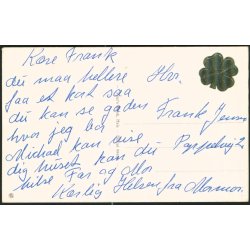 Kære Frank
du maa hellere
faa et kort saa
du kan se gaden
hvor jeg bor
Michael kan vise
dig huset kan du
hilse Far og Mor
Kærlig Hilsen fra Mormor
Hr.
Frank Jensen